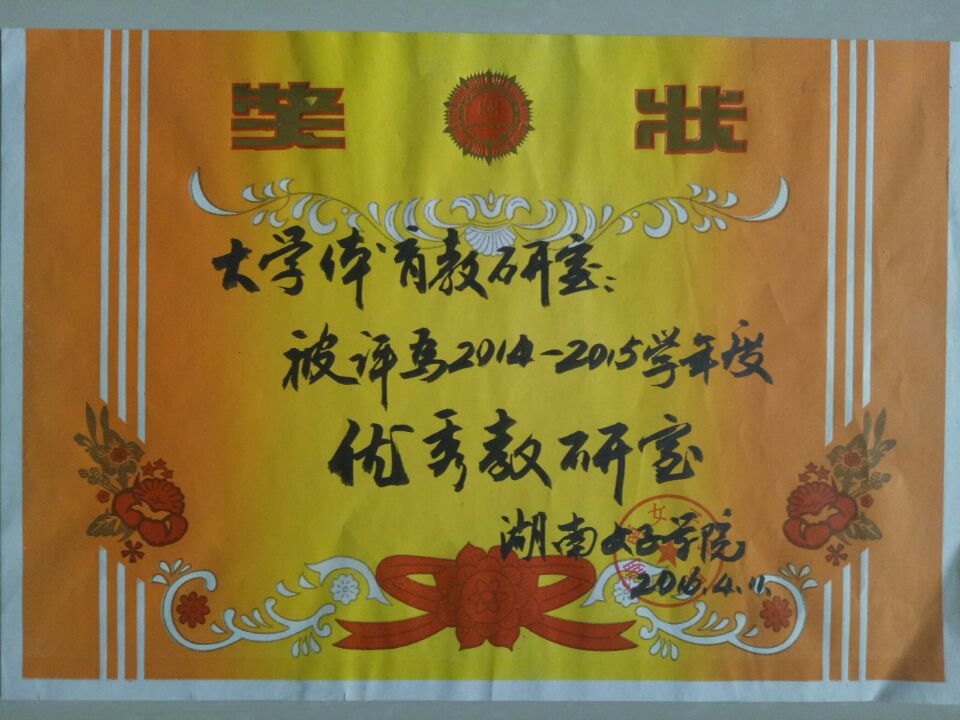 奖 状
大学体育教研室：
被评为2014-2015学年度
优秀教研室
湖南女子学院
2016.4.11.